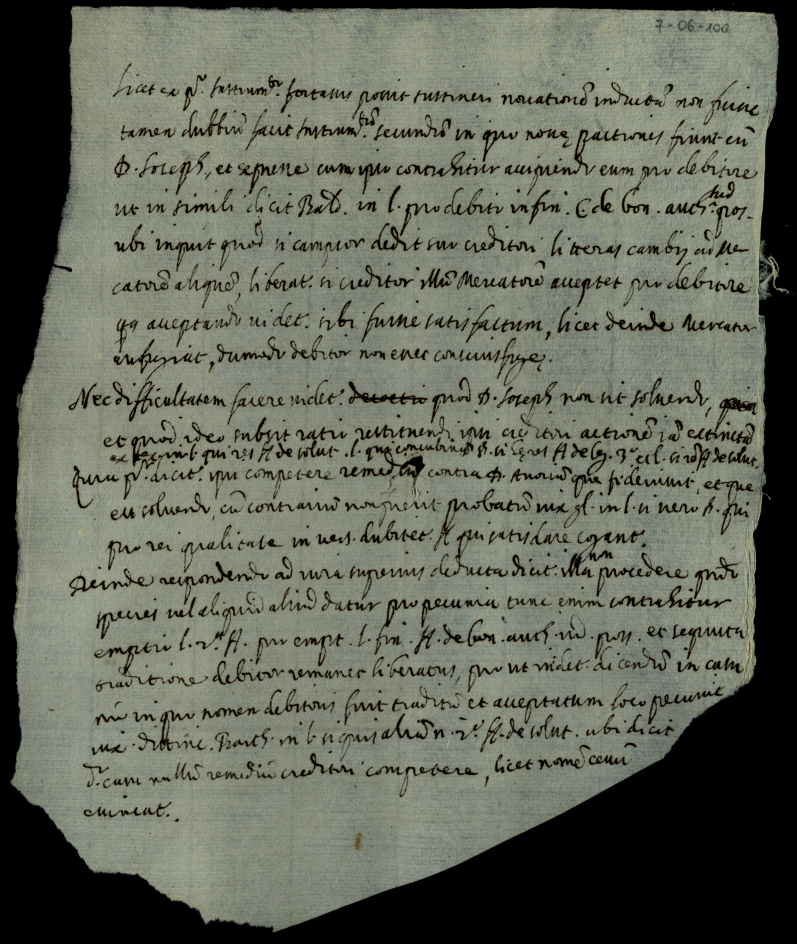 7-06-100
licet ex pº. Instrum.to fortassis possit sustineri novationẽ inductã non fuisse
tamen dubbiũ facit Instrum.tũ secundũ in quo novę pactiones fiunt cũ
D. Joseph, et expresse cum ipso contrahitur accipiendo eum pro debitore
ut in simili dicit Bald. in l. pro debito in fin. C de bon. auth. iud. poss.
ubi inquit quod si campsor dedit suo creditori litteras cambij ad Mer
catorẽ aliquẽ, liberat. si creditor illũ Mercatorẽ acceptet pro debitore
acceptando videt. sibi fuisse satisfactum, licet deinde Mercator
aufugiat, dummodo debitor non esset conscius fugę.
Nec difficultatem facere videt. quod D. Joseph non sit solvendo,
et quod ideo subsit ratio restituendi ipsi creditori actionẽ iã extinctã
ex in l. qui res ff de solut. l. concubinam §. si res ff de leg. 3º et l. si rem ff de solut.
Quia pº. dicit. ipsi competere remediũ contra D. que fideiussit, et que
est solvendo, cũ contrariũ non fuerit probatũ iuxᵃ gl. in l. si vero §. qui
pro rei qualitate in vers. dubitet. ff qui satisdare cogant.
Deinde respondendo ad iura superius deducta dicit. illa procedere quãdo
species vel aliquid aliud datur pro pecunia tunc enim contrahitur
emptio l. 2ª ff. pro empt. l. fin. ff. de bon. auth. iud. poss. et sequuta
traditione debitor remanet liberatus, pro ut videt. dicendũ in casu
nrõ in quo nomen debitoris fuit traditũ et acceptatum loco pecunię
iuxᵃ doctrinã. Barth. in l. si quis aliam n. 2º ff. de solut. ubi dicit
casu nullũ remediũ creditori competere, licet nomẽ cessũ
evincat.